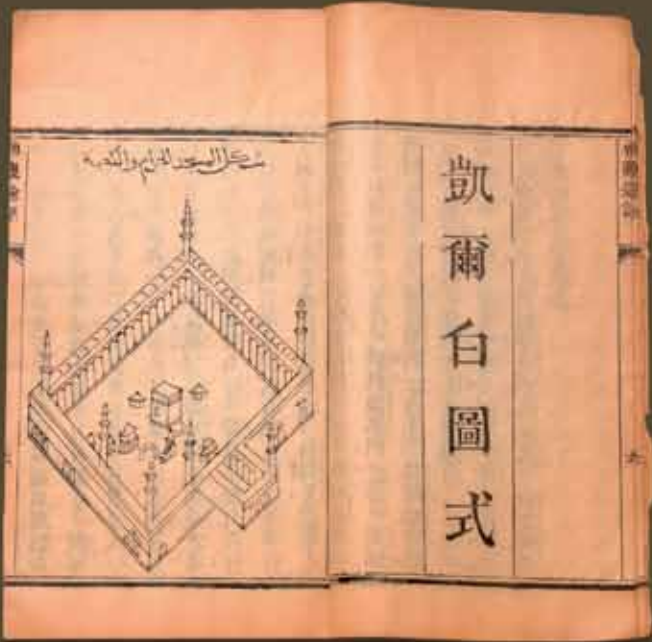 凱爾白圖式
شكل المسجد الحرام والكعبة